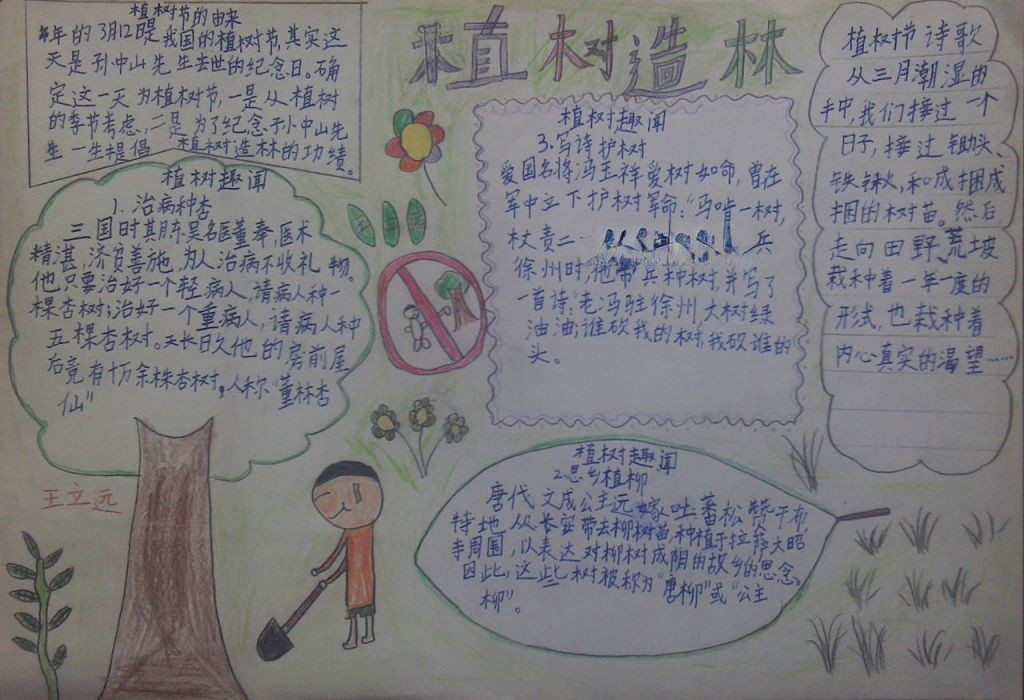 植树造林
植树节的由来
每年的3月12日是我国的植树节,其实这
天是孙中山先生去世的纪念日。确
定这一天为植树节,一是从植树
的季节考虑,二是为了纪念孙中山先
生一生提倡植树造林的功绩。
植树趣闻
1.治病种杏
三国时其东吴名医董奉,医术
精湛,济贫善施,为人治病不收礼物。
他只要治好一个轻病人,请病人种一
棵杏树;治好一个重病人,请病人种
五棵杏树。天长日久他的房前屋
后竟有十万余株杏树。人称“董林杏
仙”
王立远
植树趣闻
3.写诗护树
爱国名将冯玉祥爱树如命,曾在
军中立下护树军命:“马啃一树,
杖责二 兵
徐州时,他带兵种树,并写了
一首诗:老冯驻徐州,大树绿
油油;谁砍我的树,我砍谁的
头。
植树趣闻
2.思乡植柳
唐代文成公主远嫁吐蕃松赞干布
特地从长安带去柳树苗,种植于拉萨大昭
寺周围,以表达对柳树成阴的故乡的思念。
因此,这些树被称为“唐柳”或“公主
柳”。
植树节诗歌
从三月潮湿的
手中,我们接过一个
日子,接过锄头、
铁锹,和成捆成
捆的树苗。然后,
走向田野、荒坡
栽种着一年一度的
形式,也栽种着
内心真实的渴望……